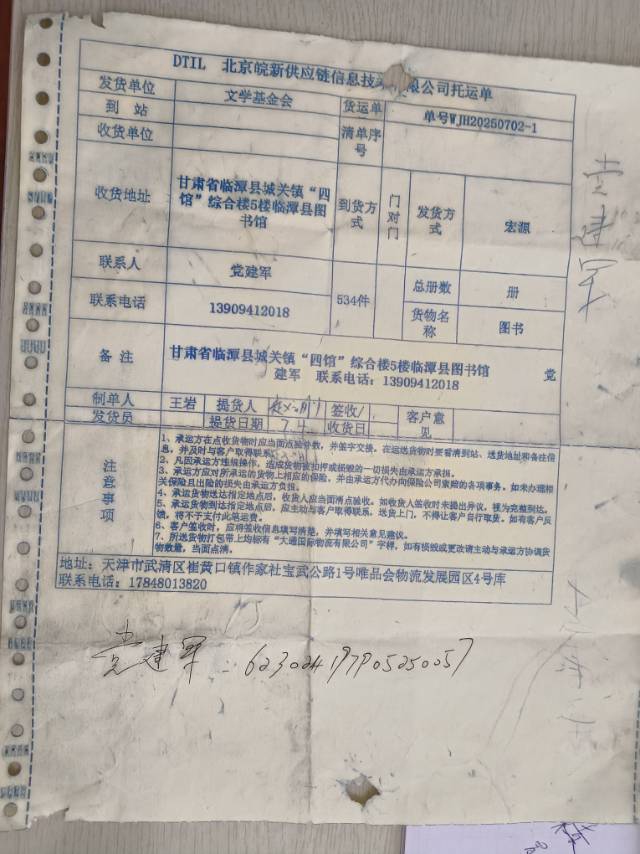 DTIL 北京皖新供应链信息技术有限公司托运单
发货单位 文学基金会 货运单 单号WJH20250702-1
到 站 清单序号
收货单位
收货地址 甘肃省临潭县城关镇“四馆”综合楼5楼临潭县图书馆 到货方式 门对门 发货方式 宏源
联系人 党建军 534件 总册数 册
联系电话 13909412018 货物名称 图书
备 注 甘肃省临潭县城关镇“四馆”综合楼5楼临潭县图书馆 党
建军 联系电话：13909412018
制单人 王岩 提货人 签收/ 客户意见
发货员 提货日期 7.4 收货日
注意事项
1、承运方在点收货物时应当面点验件数，并签字交接。在运送货物时要看清到站、送货地址和备注信
息，并及时与客户取得联系。
2、凡因承运方违规操作，造成货物被扣押或损毁的一切损失由承运方承担。
3、承运方应对所承运的货物上相应的保险，并由承运方代办向保险公司索赔的各项事务。如未办理相
关保险且出险的损失由承运方负担。
4、承运货物送达指定地点后，收货人应当面清点验收。如收货人签收时未提出异议，视为完整到达。
5、承运货物到达指定地点后，应主动与客户取得联系，送货上门，不得让客户自行取货。如有客户反
馈，将不予支付此笔运费。
6、客户签收时，应将签收信息填写清楚，并填写相关意见建议。
7、所送货物打包带上均标有“大通国际物流有限公司”字样，如有损毁或更改请主动与承运方协调货
物数量，当面点清。
地址：天津市武清区崔黄口镇作家社宝武公路1号唯品会物流发展园区4号库
联系电话：17848013820
党建军 623024197905250057
党建军